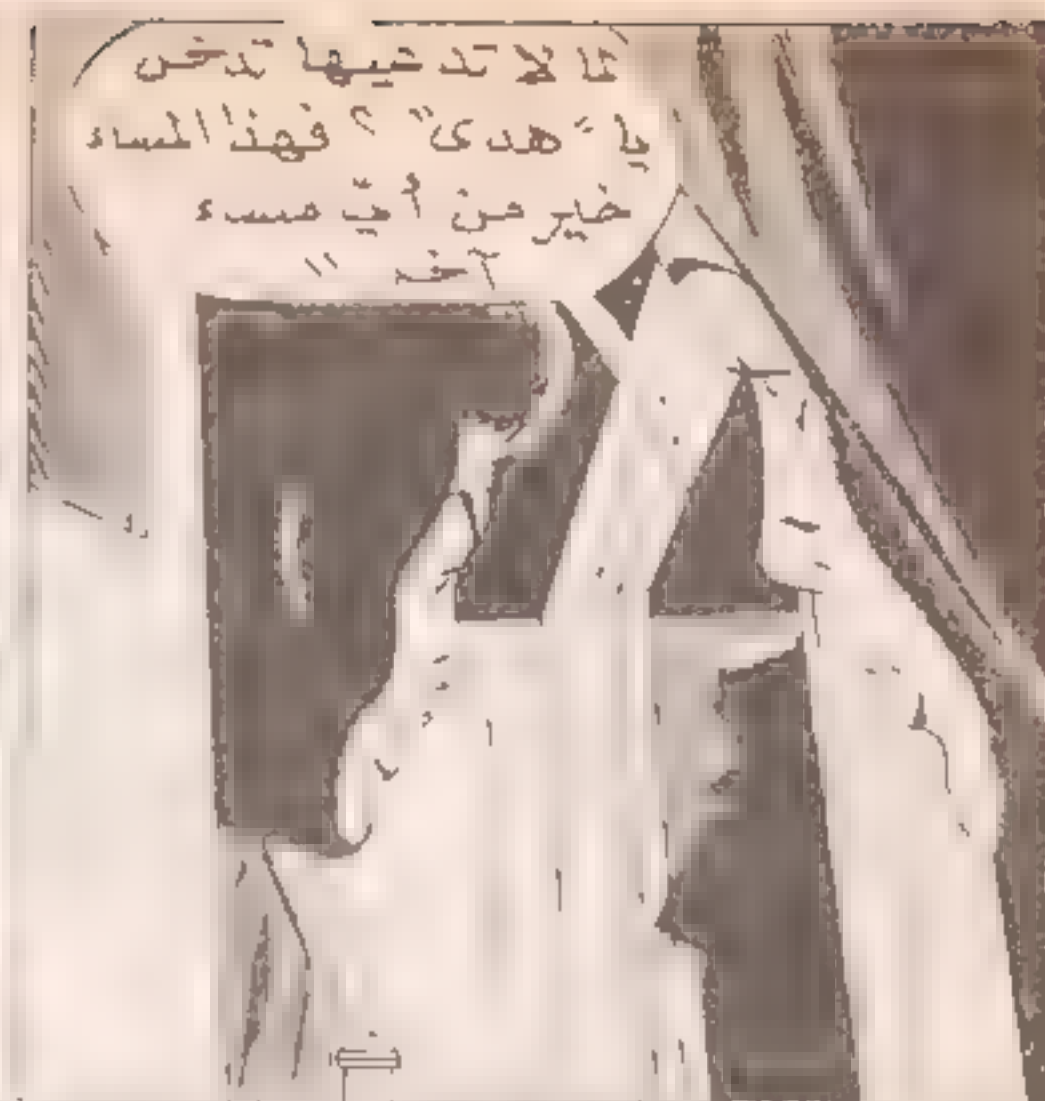 لا تدعيها تدخن
يا "هدى" ؟ فهذا المساء
خير من أي مساء
آخر "